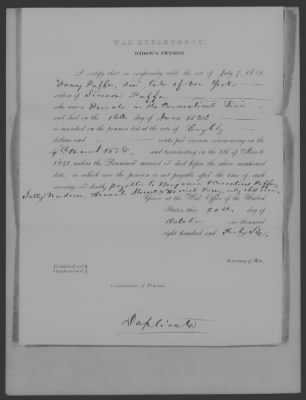 WAR DEPARTMENT,
WIDOW'S PENSION.
I certify that in conformity with the act of July 7, 1838,
Puffer, dec'd, late of New York
widow of Simeon Puffer
who was a Private in the Line
and died on the 16th day of June 1823
is inscribed on the pension list at the rate of Eighty
dollars and cents per annum commencing on the
4th March 1836, and terminating on the 4th of March
1841, unless the Pensioner married or died before the above mentioned
date, in which case the pension is not payable after the time of such
marriage or death; payable to Benjamin Puffer,
Sally only children
Given at the War Office of the United
States this 20th day of
October one thousand
eight hundred and Forty
Secretary of War.
Examined and
Countersigned
Commissioner of Pensions.
Duplicate